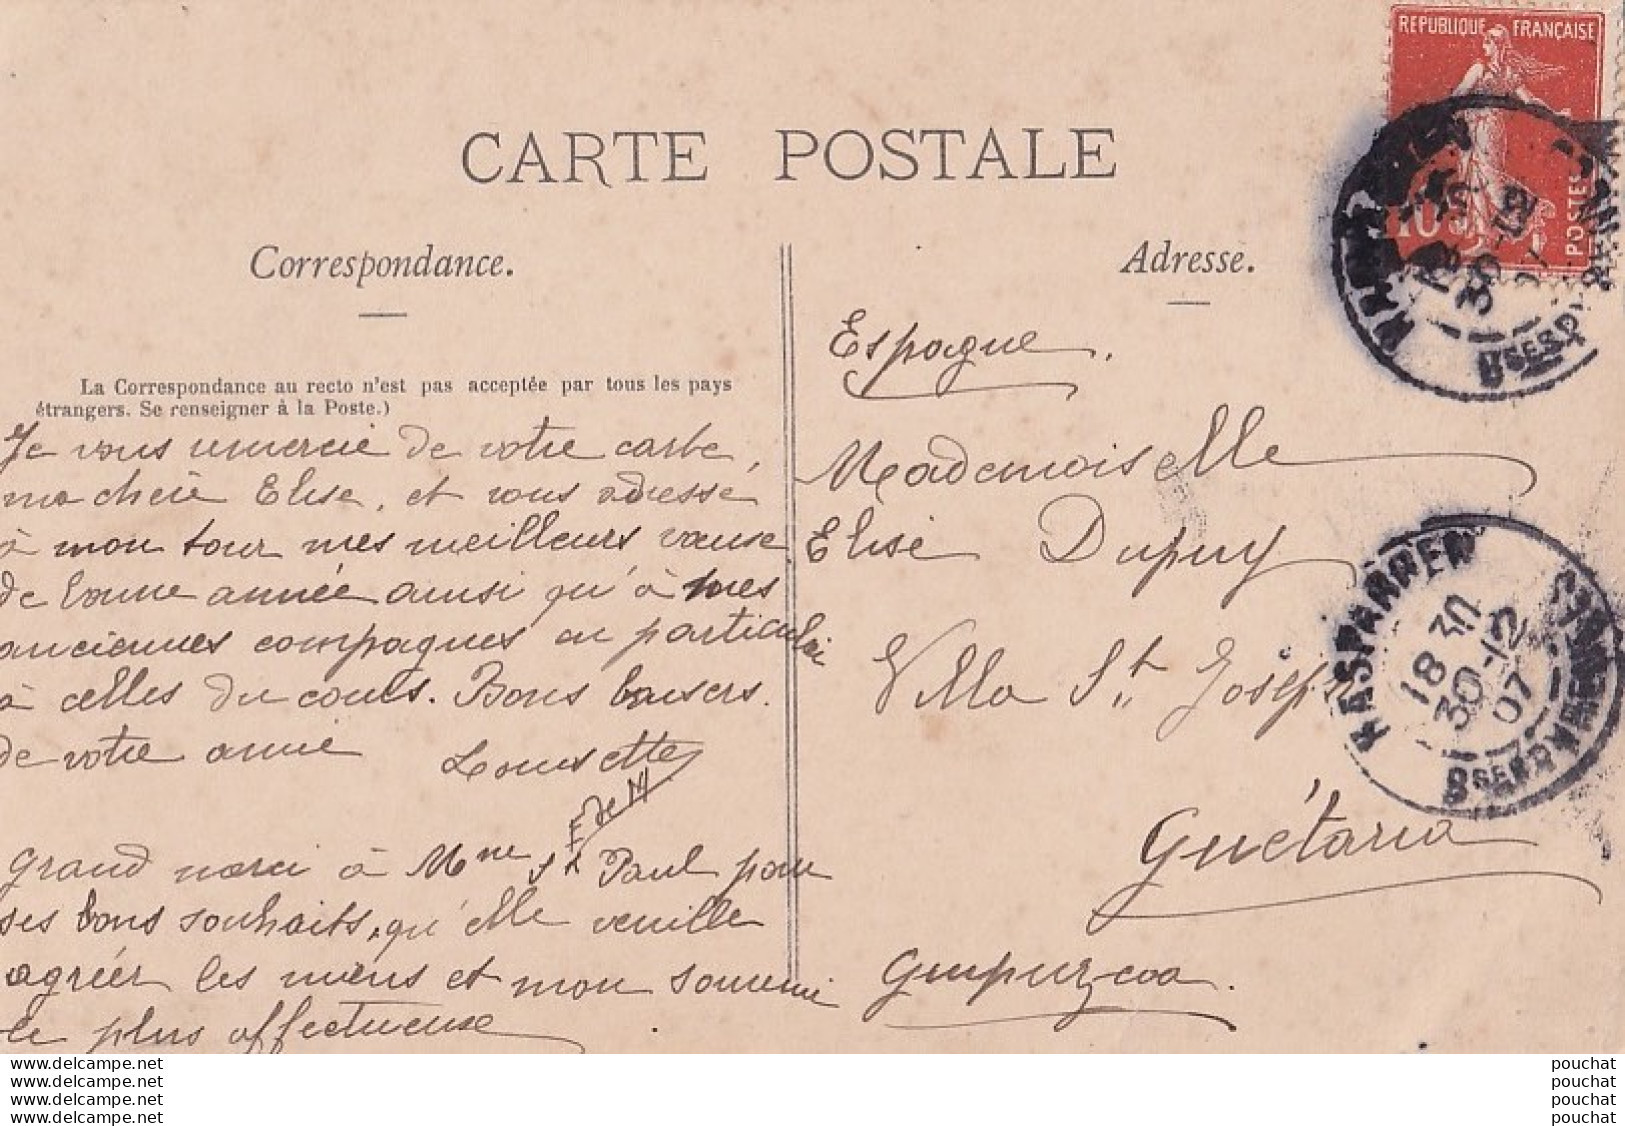 REPUBLIQUE FRANÇAISE
10
POSTES
CARTE POSTALE
Correspondance.
Adresse.
La Correspondance au recto n'est pas acceptée par tous les pays
étrangers. Se renseigner à la Poste.)
Je vous remercie de votre carte,
ma chère Elise, et vous adresse
à mon tour mes meilleurs vœuse
de bonne année ainsi qu'à mes
anciennes compagnes en particulier
à celles du cours. Bons baisers.
de votre amie Louisette
E de M
Grand merci à Mme St Paul pour
ses bons souhaits, qu'elle veuille
agréer les miens et mon souvenir
le plus affectueuse
Espagne.
Mademoiselle
Elise Dupuy
Villa St. Joseph
Guétaria
Guipuzcoa.
HASPARREN
30-12
HASPARREN
18 30
30-12
07
Bses PYRENEES
www.delcampe.net
www.delcampe.net
www.delcampe.net
www.delcampe.net
pouchat
pouchat
pouchat
pouchat